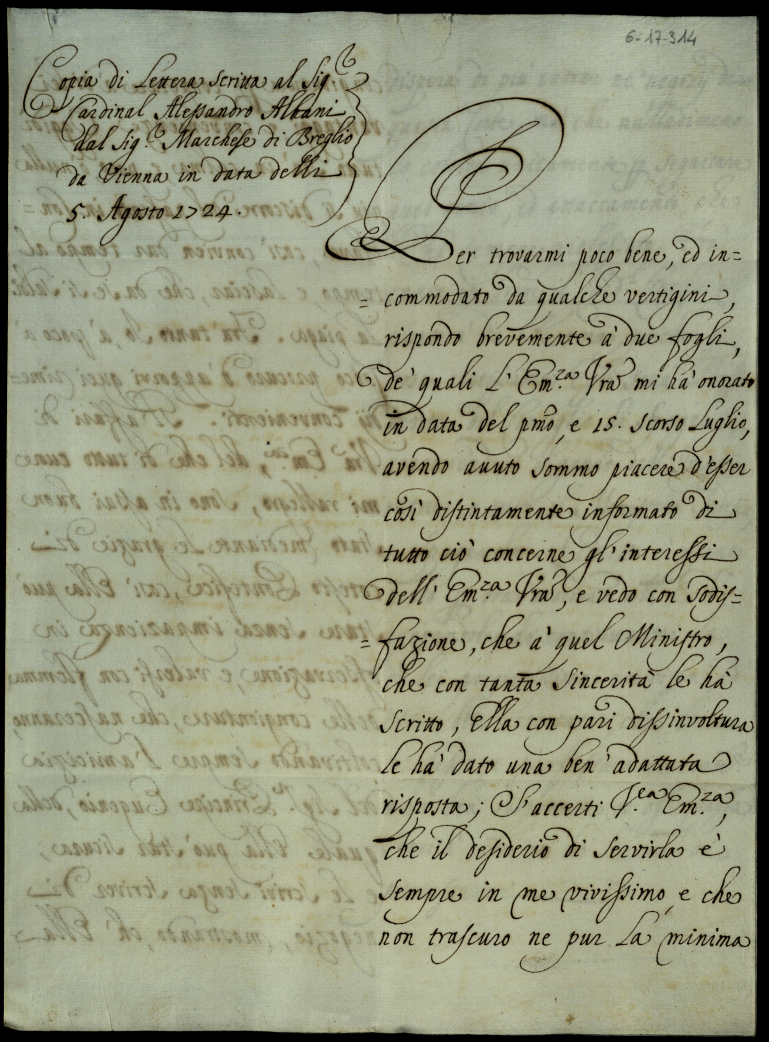 6-17-314
Copia di Lettera scritta al Sig.r
Cardinal Alessandro Albani
dal Sig.r Marchese di Breglio
da Vienna in data delli
5. Agosto 1724.
Per trovarmi poco bene, ed in=
=commodato da qualche vertigini,
rispondo brevemente à due fogli,
de' quali L' Em.za Vra mi hà onorato
in data del pmo, e 15. scorso Luglio,
avendo avuto sommo piacere d'esser
così distintamente informato di
tutto ciò concerne gl'interessi
dell' Em.za Vra, e vedo con sodis=
=fazione, che à quel Ministro,
che con tanta sincerità le hà
scritto, Ella con pari dissinvoltura
le hà dato una ben' adattata
risposta; S'accerti V.ra Em.za,
che il desiderio di servirla è
sempre in me vivissimo, e che
non trascuro ne pur la minima